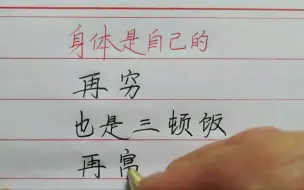 身体是自己的
再穷
也是三顿饭
再富